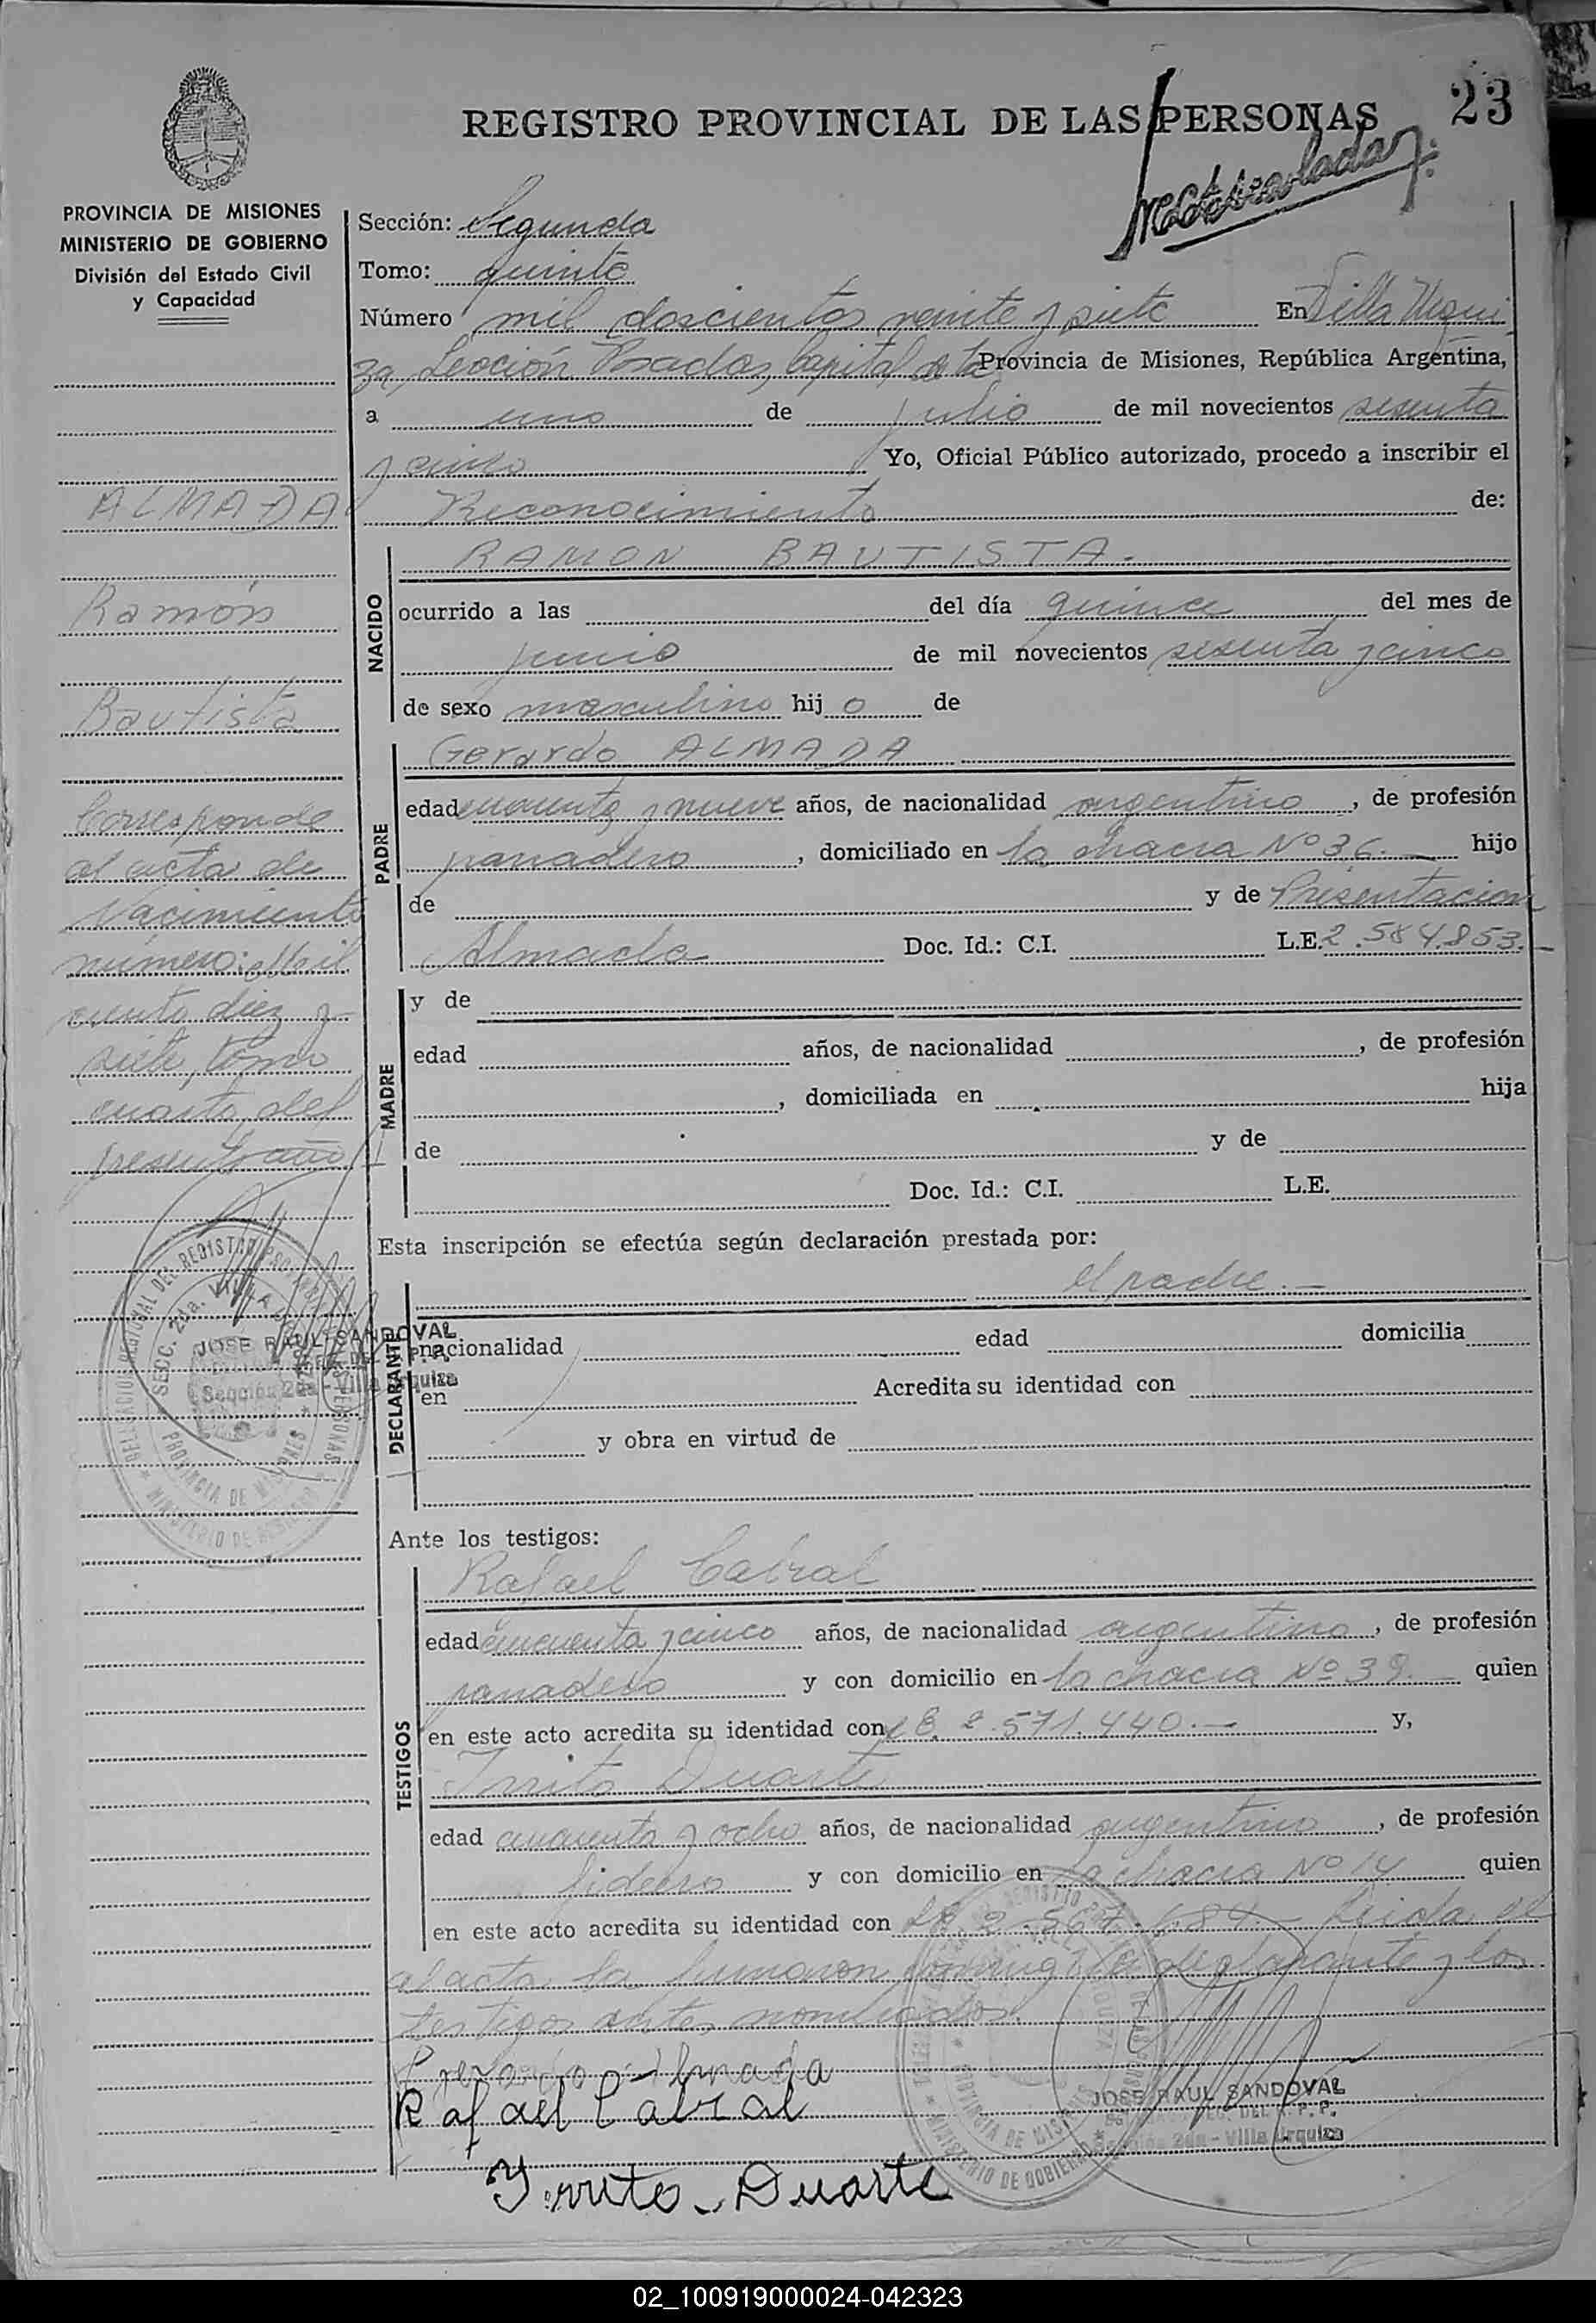 23
REGISTRO PROVINCIAL DE LAS PERSONAS
PROVINCIA DE MISIONES
MINISTERIO DE GOBIERNO
División del Estado Civil
y Capacidad
ALMADA
Ramón
Bautista
Corresponde
al acta de
Nacimiento
número: Mil
ciento diez y
siete, tomo
cuarto del
presente año
JOSE RAUL SANDOVAL
Sección 2da - Villa Urquiza
Sección: Segunda
Tomo: quinto
Número mil doscientos veinte y siete En Villa Urqui
za, Sección Posadas, Capital de la Provincia de Misiones, República Argentina,
a uno de julio de mil novecientos sesenta
y cinco Yo, Oficial Público autorizado, procedo a inscribir el
Reconocimiento de:
NACIDO
RAMON BAUTISTA.-
ocurrido a las del día quince del mes de
junio de mil novecientos sesenta y cinco
de sexo masculino hijo de
PADRE
Gerardo ALMADA
edad cuarenta y nueve años, de nacionalidad argentino, de profesión
panadero, domiciliado en la chacra Nº 36.- hijo
de y de Presentacion
Almada Doc. Id.: C.I. L.E. 2.584.853.-
MADRE
y de
edad años, de nacionalidad , de profesión
, domiciliada en hija
de y de
Doc. Id.: C.I. L.E.
Esta inscripción se efectúa según declaración prestada por:
el padre.-
DECLARANTE
nacionalidad edad domicilia
en Acredita su identidad con
y obra en virtud de
Ante los testigos:
TESTIGOS
Rafael Cabral
edad cincuenta y cinco años, de nacionalidad argentino, de profesión
panadero y con domicilio en la chacra Nº 39.- quien
en este acto acredita su identidad con 2.571.440.- y,
Irrito Duarte
edad cuarenta y ocho años, de nacionalidad argentino, de profesión
fideero y con domicilio en la chacra Nº 14 quien
en este acto acredita su identidad con Leida el
al acta la firmaron conmigo el declarante y los
testigos antes nombrados.
Gerardo Almada
Rafael Cabral
JOSE RAUL SANDOVAL
Sección 2da - Villa Urquiza
Irrito Duarte
02_100919000024-042323